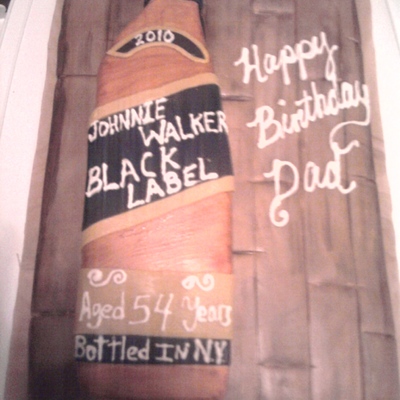 2010
JOHNNIE
WALKER
BLACK
LABEL
Aged 54 Years
Bottled IN NY
Happy
Birthday
Dad